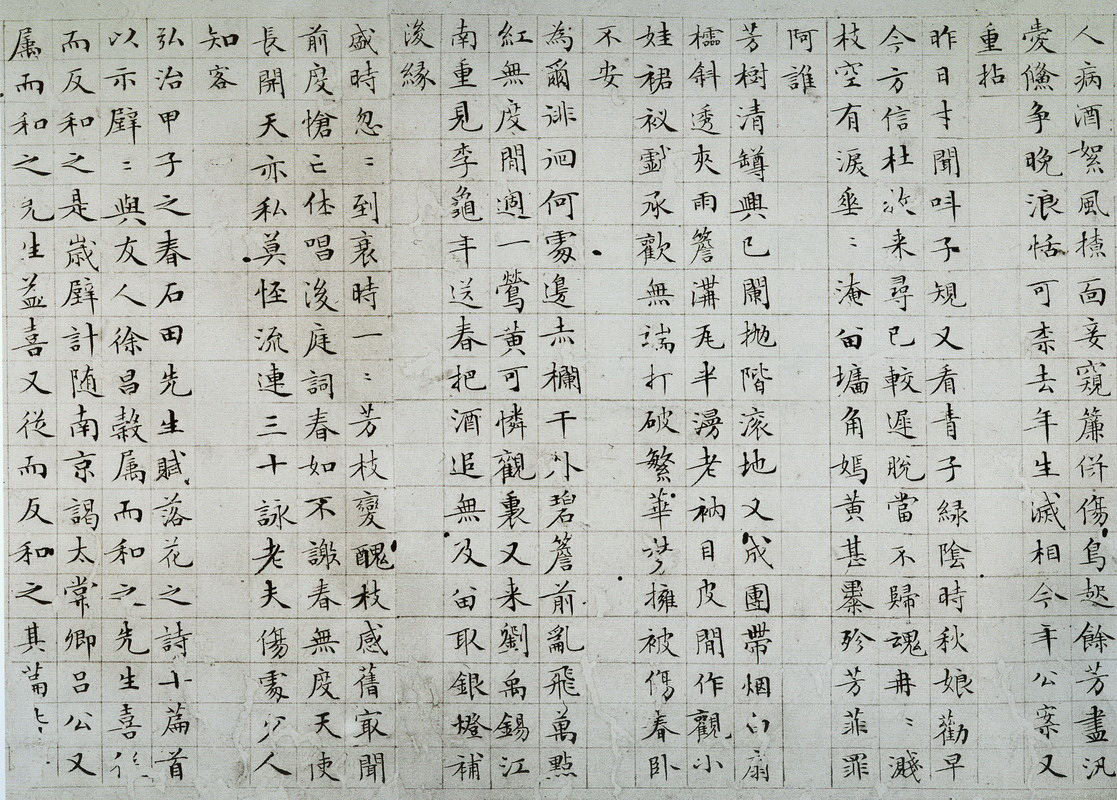 人病酒絮風揍面妾窺簾併傷鳥起餘芳盡汎
愛儵争晚浪恬可柰去年生滅相今年公案又
重拈
昨日才聞叫子規又看青子緑陰時秋娘勸早
今方信杜牧来尋已較遲脱當不歸魂冉〻濺
枝空有淚垂〻淹留墻角嫣黄甚暴殄芳菲罪
阿誰
芳樹清罇興已闌抛階滚地又成團帶烟白扇
櫺斜透夾雨簷溝瓦半漫老衲目皮閒作觀小
娃裙衩戲承歡無端打破繁華夢擁被傷春卧
不安
為爾徘徊何處邊赤欄干外碧簷前亂飛萬點
紅無度閒過一鶯黄可憐觀裏又来劉禹錫江
南重見李龜年送春把酒追無及留取銀燈補
後緣
盛時忽〻到衰時一〻芳枝變醜枝感舊最聞
前度愴亡休唱後庭詞春如不謝春無度天使
長開天亦私莫怪流連三十詠老夫傷處少人
知客
弘治甲子之春石田先生賦落花之詩十篇首
以示璧〻與友人徐昌穀属而和之先生喜從
而反和之是歳璧計随南京謁太常卿吕公又
属而和之先生益喜又從而反和之其篇